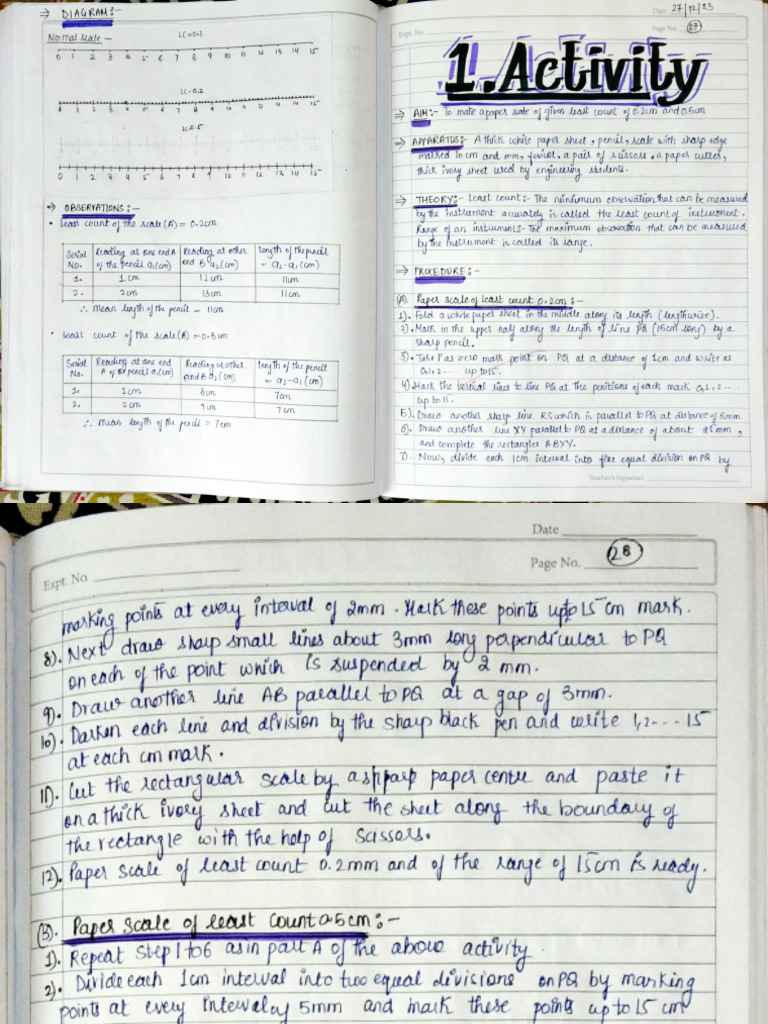 ⇒ DIAGRAM:-
Normal scale -
LC=0.1
0 1 2 3 4 5 6 7 8 9 10 11 12 13 14 15
LC=0.2
0 1 2 3 4 5 6 7 8 9 10 11 12 13 14 15
LC=0.5
0 1 2 3 4 5 6 7 8 9 10 11 12 13 14 15
⇒ OBSERVATIONS:-
• Least count of the scale (A) = 0.2cm
Serial No. | Reading at one end A of the pencil a1(cm) | Reading at other end B a2(cm) | Length of the pencil = a2-a1(cm)
1. 1cm 12cm 11cm
2. 2cm 13cm 11cm
∴ Mean length of the pencil = 11cm
• Least count of the scale(B) = 0.5cm
Serial No. | Reading at one end A of pencil a1(cm) | Reading at other end B a2(cm) | Length of the pencil = a2-a1(cm)
1. 1cm 8cm 7cm
2. 2cm 9cm 7cm
∴ Mean length of the pencil = 7cm
Date 27/12/23
Expt. No.
Page No. 27
1. Activity
⇒ AIM:- To make a paper scale of given least count of 0.2cm and 0.5cm
⇒ APPARATUS:- A thick white paper sheet, pencil, scale with sharp edge
marked in cm and mm, fevicol, a pair of scissors, a paper cutter,
thick ivory sheet used by engineering students.
⇒ THEORY:- Least count: The minimum observation that can be measured
by the instrument accurately is called the least count of instrument.
Range of an instrument:- The maximum observation that can be measured
by the instrument is called its range.
⇒ PROCEDURE:-
(A). Paper scale of least count 0.2cm:-
1). Fold a white paper sheet in the middle along its length (lengthwise).
2). Mark in the upper half along the length of line PQ (15cm long) by a
sharp pencil.
3). Take P as zero mark point on PQ at a distance of 1cm and write as
0,1,2.... up to 15.
4) Mark the vertical lines to line PQ at the positions of each mark 0,1,2...
up to 15.
5). Draw another sharp line RS which is parallel to PQ at distance of 5mm.
6). Draw another line XY parallel to PQ at a distance of about mm,
and complete the rectangles ABXY.
7). Now, divide each 1cm interval into five equal division on PQ by
Teacher's Signature
Date
Expt. No.
Page No. 28
marking points at every interval of 2mm. Mark these points upto 15 cm mark.
8). Next draw sharp small lines about 3mm long perpendicular to PQ
on each of the point which is suspended by 2 mm.
9). Draw another line AB parallel to PQ at a gap of 3mm.
10). Darken each line and division by the sharp black pen and write 1,2---15
at each cm mark.
11). Cut the rectangular scale by a sharp paper centre and paste it
on a thick ivory sheet and cut the sheet along the boundary of
the rectangle with the help of scissors.
12). Paper scale of least count 0.2mm and of the range of 15cm is ready.
(B). Paper scale of least count 0.5cm:-
1). Repeat step 1 to 6 as in part A of the above activity.
2). Divide each 1cm interval into two equal divisions on PQ by marking
points at every interval of 5mm and mark these points up to 15 cm